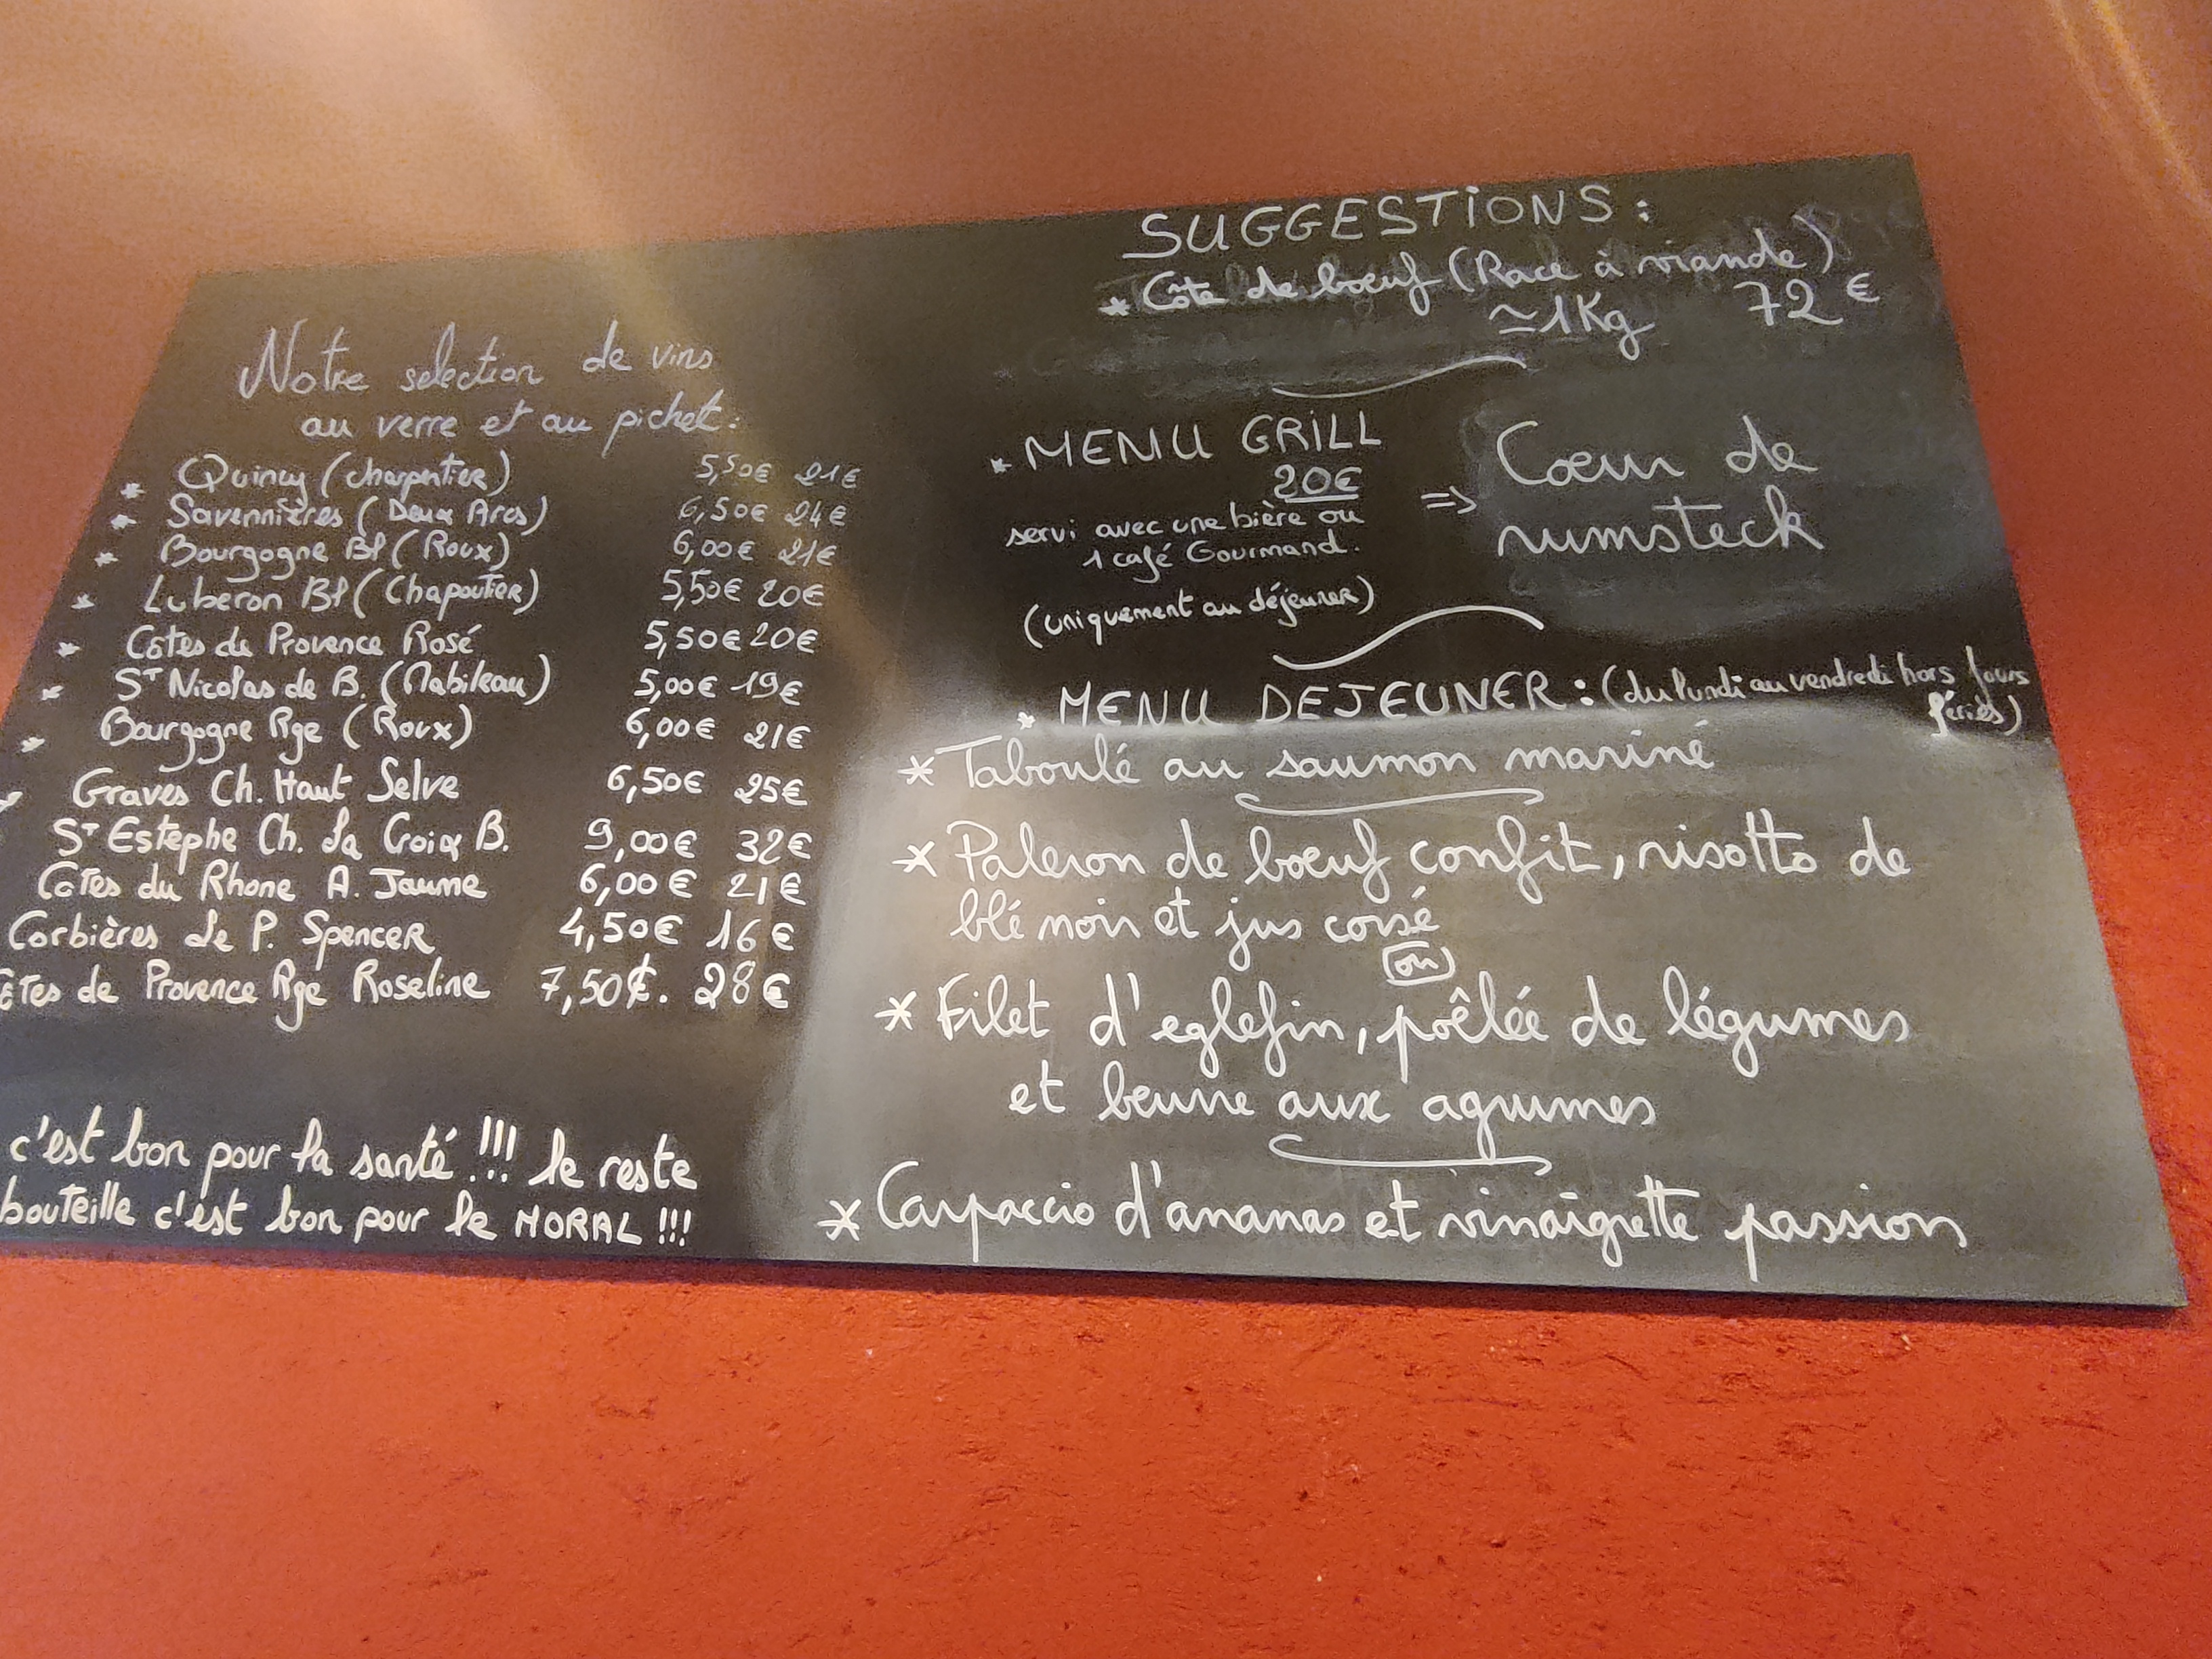 Notre selection de vins
au verre et au pichet:
* Quincy (Charpentier) 5,50€ 21€
* Savennières (Deux Arcs) 6,50€ 24€
* Bourgogne Bl (Roux) 6,00€ 21€
* Luberon Bl (Chapoutier) 5,50€ 20€
* Côtes de Provence Rosé 5,50€ 20€
* ST Nicolas de B. (Mabileau) 5,00€ 19€
* Bourgogne Rge (Roux) 6,00€ 21€
Graves Ch. Haut Selve 6,50€ 25€
ST Estephe Ch. La Croix B. 9,00€ 32€
Côtes du Rhone A. Jaume 6,00€ 21€
Corbières Le P. Spencer 4,50€ 16€
ôtes de Provence Rge Roseline 7,50€. 28€
c'est bon pour la santé!!! le reste
bouteille c'est bon pour le MORAL!!!
SUGGESTIONS:
* Côte de boeuf (Race à viande)
≃1Kg 72€
* MENU GRILL
20€
servi avec une bière ou
1 café Gourmand.
(uniquement au déjeuner)
=> Coeur de
rumsteck
* MENU DEJEUNER: (du lundi au vendredi hors jours
fériés)
* Taboulé au saumon mariné
* Paleron de boeuf confit, risotto de
blé noir et jus corsé
ou
* Filet d'eglefin, poêlée de légumes
et beurre aux agrumes
* Carpaccio d'ananas et vinaigrette passion